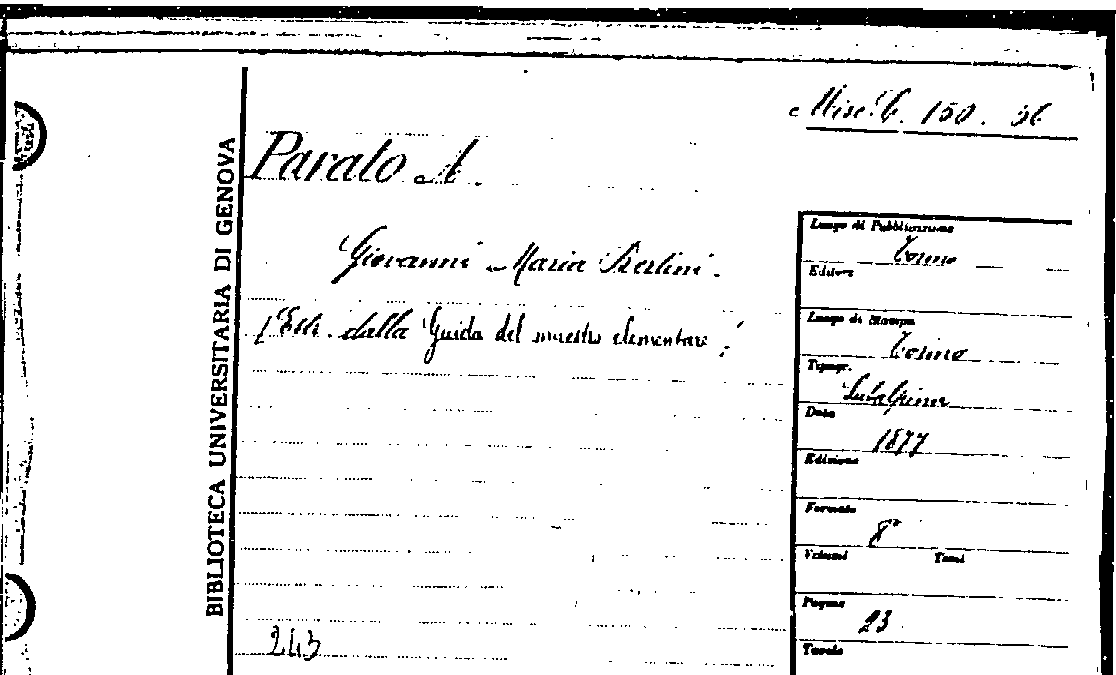 Misc. C. 150. 36
BIBLIOTECA UNIVERSITARIA DI GENOVA
Parato A.
Giovanni Maria Bertini.
(Estr. dalla Guida del maestro elementare;
243
Luogo di Pubblicazione
Torino
Editore
Luogo di Stampa
Torino
Tipogr.
Subalpina
Data
1877
Edizione
Formato
8°
Volumi Tomi
Pagine
23
Tavole